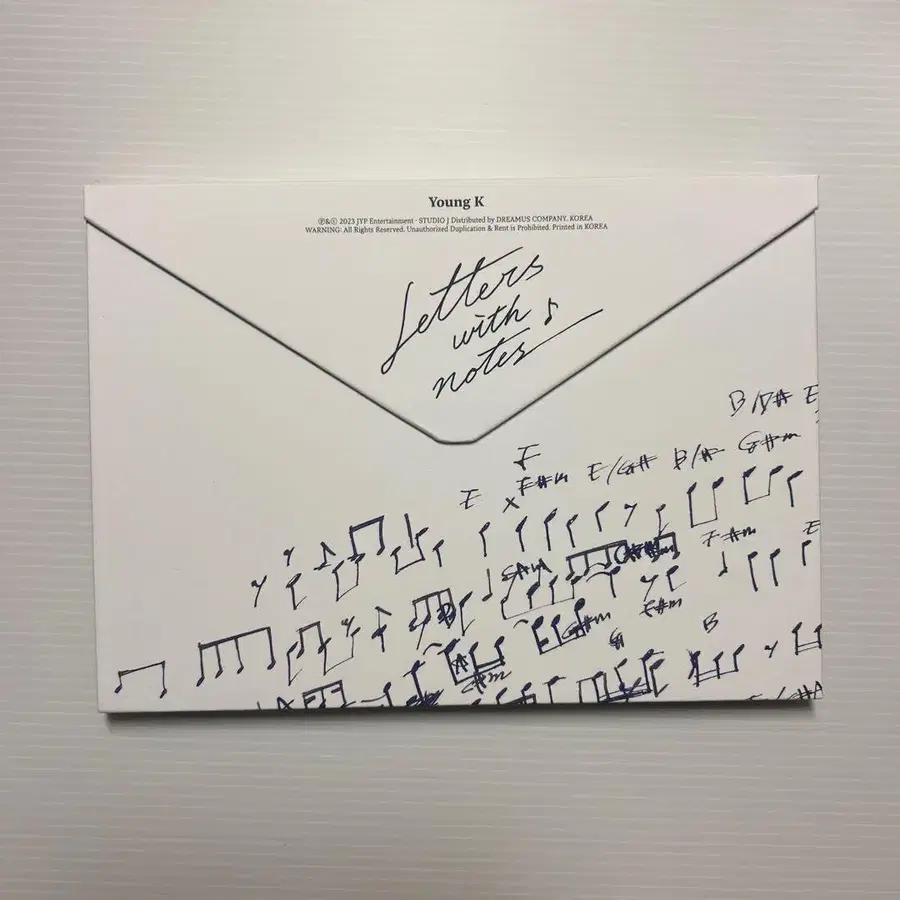 Young K
℗&ⓒ 2023 JYP Entertainment · STUDIO J Distributed by DREAMUS COMPANY. KOREA
WARNING: All Rights Reserved. Unauthorized Duplication & Rent is Prohibited. Printed in KOREA
Letters
with ♪
notes
B/D# E
F
E x F#m E/G# B/# G#m
F#m E
G#m F#m
B
A
C#m
E/G#